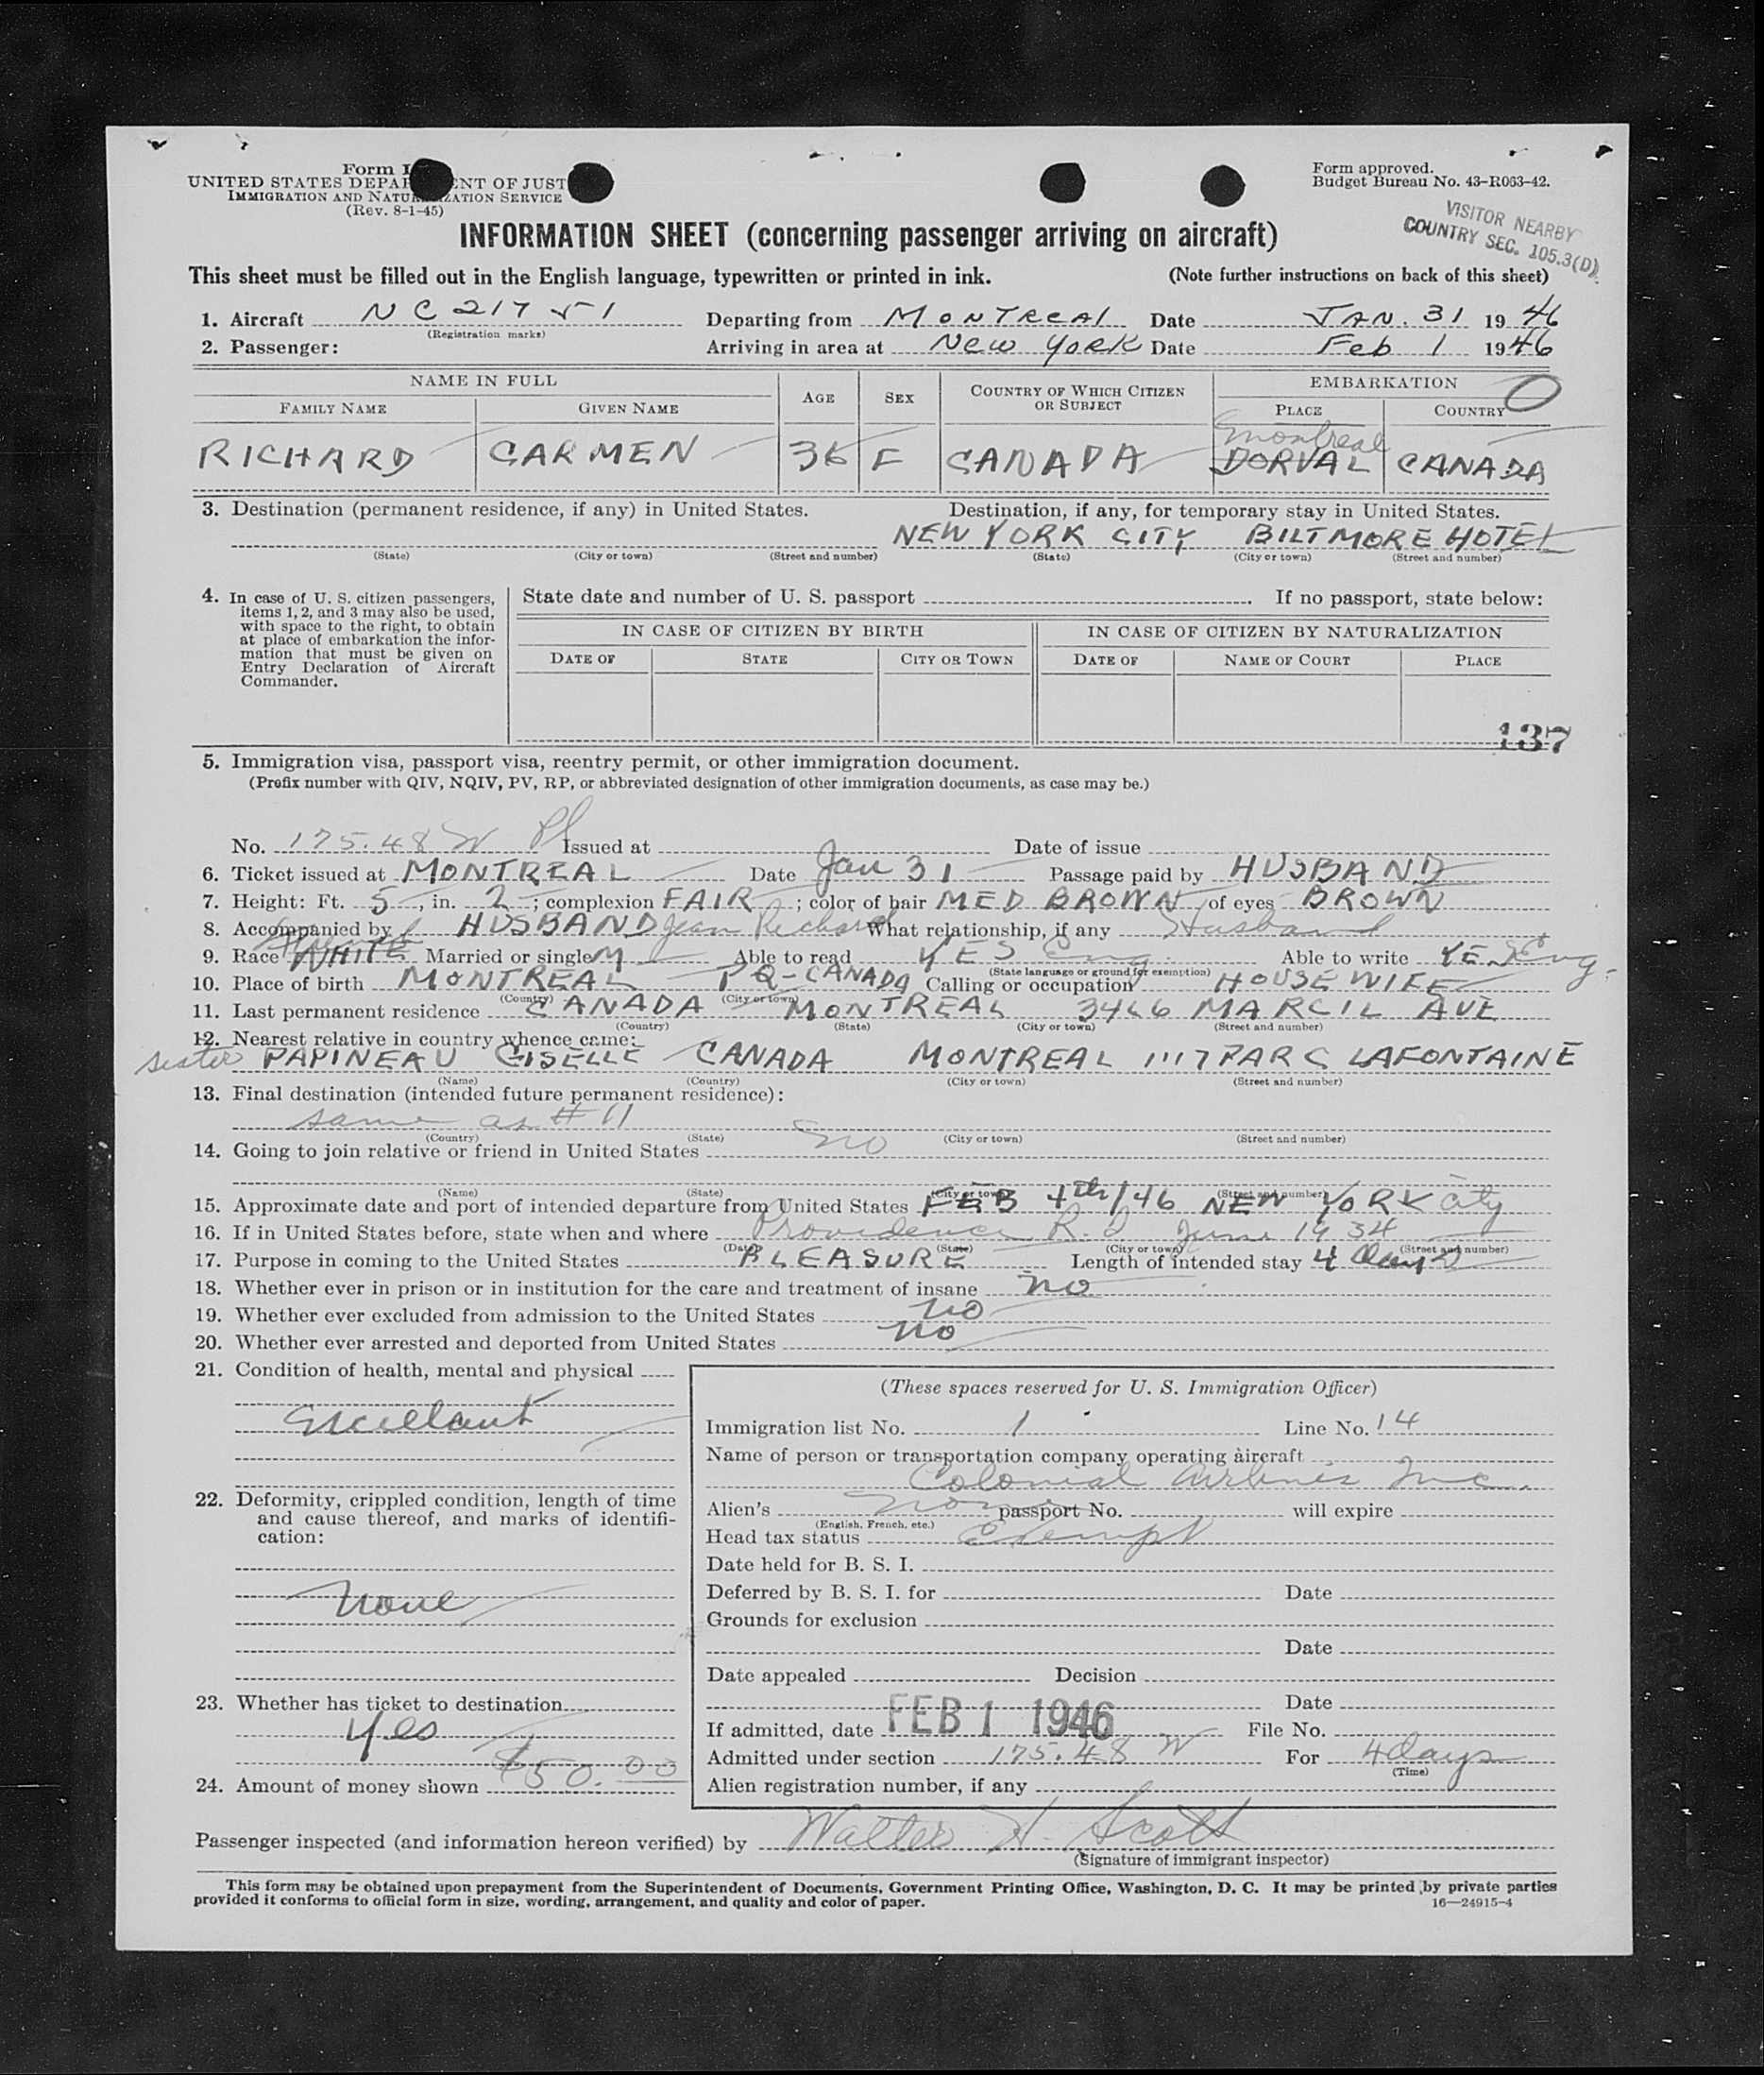 Form I
UNITED STATES DEPAR ENT OF JUST
IMMIGRATION AND NATU ZATION SERVICE
(Rev. 8-1-45)
Form approved.
Budget Bureau No. 43-R063-42.
VISITOR NEARBY
COUNTRY SEC. 105.3(D)
INFORMATION SHEET (concerning passenger arriving on aircraft)
This sheet must be filled out in the English language, typewritten or printed in ink. (Note further instructions on back of this sheet)
1. Aircraft NC 21751 Departing from MONTREAL Date JAN. 31 1946
(Registration marks)
2. Passenger: Arriving in area at NEW YORK Date Feb 1 1946
NAME IN FULL AGE SEX COUNTRY OF WHICH CITIZEN OR SUBJECT EMBARKATION
FAMILY NAME GIVEN NAME PLACE COUNTRY
Montreal
RICHARD CARMEN 36 F CANADA DORVAL CANADA
3. Destination (permanent residence, if any) in United States. Destination, if any, for temporary stay in United States.
NEW YORK CITY BILTMORE HOTEL
(State) (City or town) (Street and number) (State) (City or town) (Street and number)
4. In case of U. S. citizen passengers, items 1, 2, and 3 may also be used, with space to the right, to obtain at place of embarkation the information that must be given on Entry Declaration of Aircraft Commander.
State date and number of U. S. passport . If no passport, state below:
IN CASE OF CITIZEN BY BIRTH IN CASE OF CITIZEN BY NATURALIZATION
DATE OF STATE CITY OR TOWN DATE OF NAME OF COURT PLACE
137
5. Immigration visa, passport visa, reentry permit, or other immigration document.
(Prefix number with QIV, NQIV, PV, RP, or abbreviated designation of other immigration documents, as case may be.)
No. 175.48 W Issued at Date of issue
6. Ticket issued at MONTREAL Date Jan 31 Passage paid by HUSBAND
7. Height: Ft. 5, in. 2; complexion FAIR; color of hair MED BROWN of eyes BROWN
8. Accompanied by HUSBAND Jean Richard What relationship, if any Husband
9. Race WHITE Married or single M Able to read YES Eng. Able to write YES Eng.
(State language or ground for exemption)
10. Place of birth MONTREAL PQ-CANADA Calling or occupation HOUSEWIFE
(Country) (City or town)
11. Last permanent residence CANADA MONTREAL 3466 MARCIL AVE
(Country) (State) (City or town) (Street and number)
12. Nearest relative in country whence came:
sister PAPINEAU GISELLE CANADA MONTREAL 1117 PARC LAFONTAINE
(Name) (Country) (City or town) (Street and number)
13. Final destination (intended future permanent residence):
same as #11
(Country) (State) (City or town) (Street and number)
14. Going to join relative or friend in United States no
(Name) (State) (City or town) (Street and number)
15. Approximate date and port of intended departure from United States FEB 4th/46 NEW YORK City
16. If in United States before, state when and where Providence R.I. June 1934
(Date) (State) (City or town) (Street and number)
17. Purpose in coming to the United States PLEASURE Length of intended stay 4 days
18. Whether ever in prison or in institution for the care and treatment of insane no
19. Whether ever excluded from admission to the United States no
20. Whether ever arrested and deported from United States no
21. Condition of health, mental and physical
Excellant
22. Deformity, crippled condition, length of time and cause thereof, and marks of identification:
None
23. Whether has ticket to destination
Yes
24. Amount of money shown $50.00
(These spaces reserved for U. S. Immigration Officer)
Immigration list No. 1 Line No. 14
Name of person or transportation company operating aircraft
Colonial Airlines Inc.
Alien's none passport No. will expire
(English, French, etc.)
Head tax status Exempt
Date held for B. S. I.
Deferred by B. S. I. for Date
Grounds for exclusion
Date
Date appealed Decision
Date
If admitted, date FEB 1 1946 File No.
Admitted under section 175.48 W For 4 days
(Time)
Alien registration number, if any
Passenger inspected (and information hereon verified) by Walter H. Scott
(Signature of immigrant inspector)
This form may be obtained upon prepayment from the Superintendent of Documents, Government Printing Office, Washington, D. C. It may be printed by private parties
provided it conforms to official form in size, wording, arrangement, and quality and color of paper. 16—24915-4